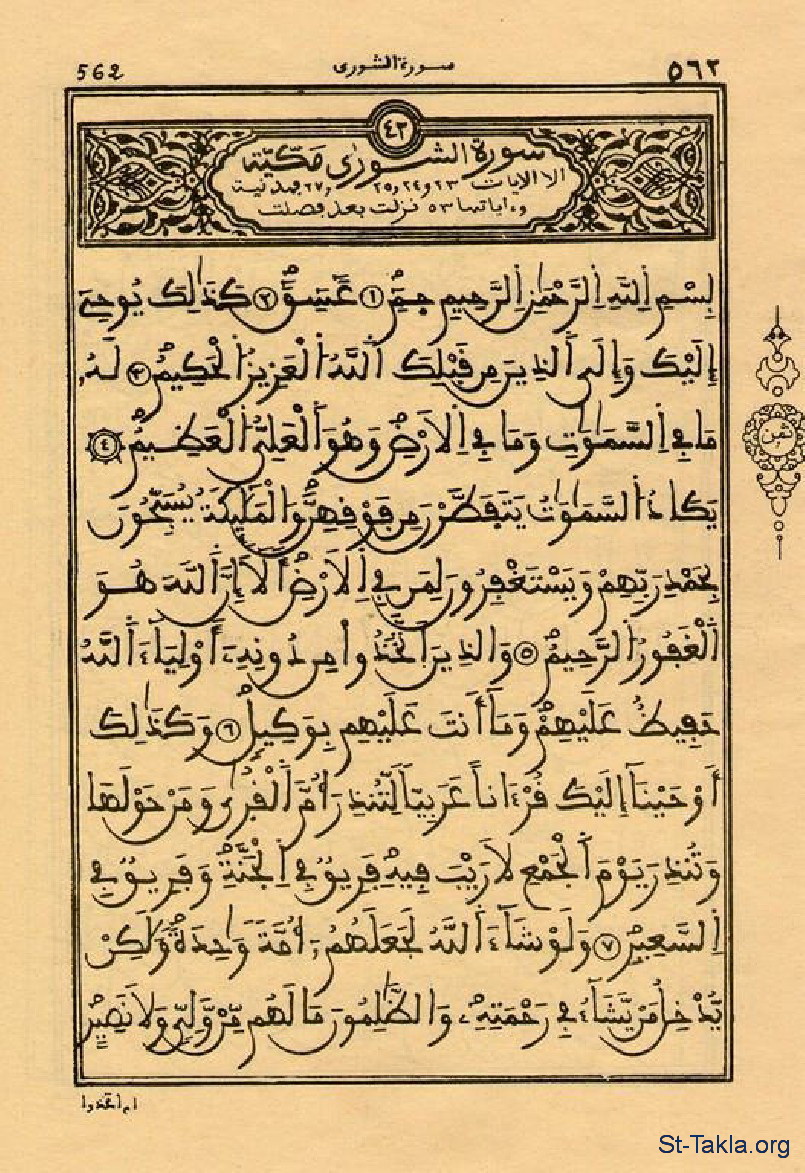 562 سورة الشورى ٥٦٢
٤٢
سورة الشورى مكية
الا الايات ٢٣ و ٢٤ و ٢٥ و ٢٧ فمدنية
وءاياتها ٥٣ نزلت بعد فصلت
بِسْمِ اِللَّهِ اِلرَّحْمَٰنِ اِلرَّحِيمِ حمِّ ١ عَسِقِّ ٢ كَذَٰلِكَ يُوحِے
إِلَيْكَ وَإِلَى اَلذِينَ مِن قَبْلِكَ اَللَّهُ اُلْعَزِيزُ اُلْحَكِيمُ ٣ لَهُۥ
مَا فِے اِلسَّمَٰوَٰتِ وَمَا فِے اِلْأَرْضِ وَهُوَ اَلْعَلِيُّ اُلْعَظِيمُ ٤
يَكَادُ اُلسَّمَٰوَٰتُ يَتَفَطَّرْنَ مِن فَوْقِهِنَّ وَالْمَلَٰئِكَةُ يُسَبِّحُونَ
بِحَمْدِ رَبِّهِمْ وَيَسْتَغْفِرُونَ لِمَن فِے اِلْأَرْضِ أَلَا إِنَّ اَللَّهَ هُوَ
اَلْغَفُورُ اُلرَّحِيمُ ٥ وَالذِينَ اَتَّخَذُواْ مِن دُونِهِۦ أَوْلِيَاءَ اَللَّهُ
حَفِيظٌ عَلَيْهِمْ وَمَا أَنتَ عَلَيْهِم بِوَكِيلٍ ٦ وَكَذَٰلِكَ
أَوْحَيْنَا إِلَيْكَ قُرْءَاناً عَرَبِيّاً لِّتُنذِرَ أُمَّ اَلْقُرٜىٰ وَمَنْ حَوْلَهَا
وَتُنذِرَ يَوْمَ اَلْجَمْعِ لَا رَيْبَ فِيهِ فَرِيقٌ فِے اِلْجَنَّةِ وَفَرِيقٌ فِے
اِلسَّعِيرِ ٧ وَلَوْ شَاءَ اَللَّهُ لَجَعَلَهُمُۥ أُمَّةً وَٰحِدَةً وَلَٰكِنْ
يُّدْخِلُ مَنْ يَّشَاءُ فِے رَحْمَتِهِۦ وَالظَّٰلِمُونَ مَا لَهُم مِّنْ وَّلِيٍّ وَلَا نَصِيرٍ
ام اتخذوا
St-Takla.org